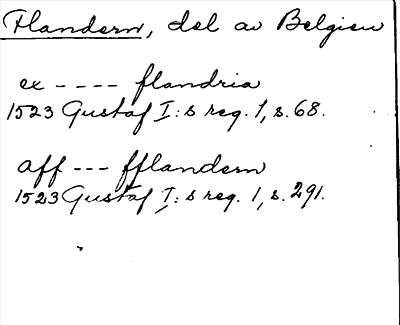 Flandern, del av Belgien
ex - - - - flandria
1523 Gustaf I: s reg. 1, s. 68.
aff - - - fflandern
1523 Gustaf I: s reg. 1, s. 291.